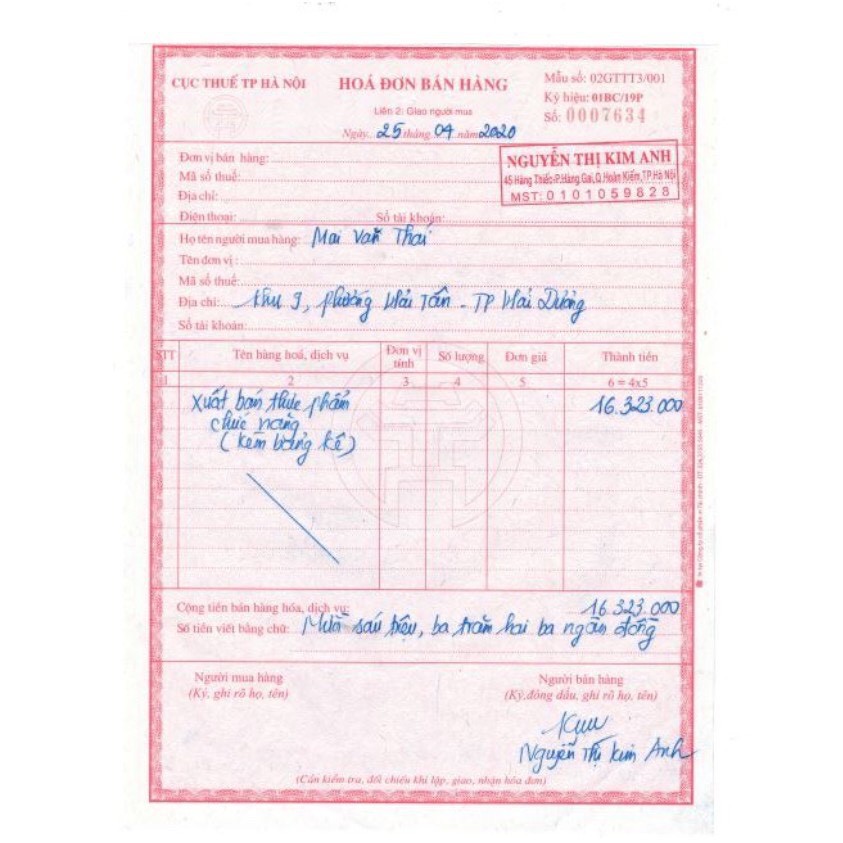 CỤC THUẾ TP HÀ NỘI
HOÁ ĐƠN BÁN HÀNG
Mẫu số: 02GTTT3/001
Liên 2: Giao người mua
Ký hiệu: 01BC/19P
Ngày 25 tháng 04 năm 2020
Số: 0007634
Đơn vị bán hàng:
NGUYỄN THỊ KIM ANH
Mã số thuế:
45 Hàng Thiếc-P.Hàng Gai,Q.Hoàn Kiếm,TP.Hà Nội
Địa chỉ:
MST: 0101059828
Điện thoại: Số tài khoản:
Họ tên người mua hàng: Mai Văn Thai
Tên đơn vị:
Mã số thuế:
Địa chỉ: Khu 9, phường Hải Tân - TP Hải Dương
Số tài khoản:
STT Tên hàng hoá, dịch vụ Đơn vị tính Số lượng Đơn giá Thành tiền
1 2 3 4 5 6 = 4x5
Xuất bán thực phẩm 16.323.000
chức năng
(kèm bảng kê)
Cộng tiền bán hàng hóa, dịch vụ: 16.323.000
Số tiền viết bằng chữ: Mười sáu triệu, ba trăm hai ba ngàn đồng
Người mua hàng Người bán hàng
(Ký, ghi rõ họ, tên) (Ký,đóng dấu, ghi rõ họ, tên)
Nguyễn Thị Kim Anh
(Cần kiểm tra, đối chiếu khi lập, giao, nhận hóa đơn)